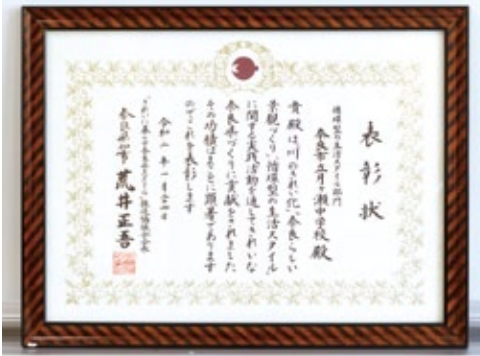 表彰状
循環型の生活スタイル部門
奈良市立月ヶ瀬中学校 殿
貴殿は川のきれい化、奈良らしい
景観づくり、循環型の生活スタイル
に関する実践活動を通してきれいな
奈良県づくりに貢献をされました
その功績はまことに顕著であります
のでこれを表彰します
令和二年一月
きれいに暮らす奈良県スタイル推進協議会会長
奈良県知事 荒井正吾